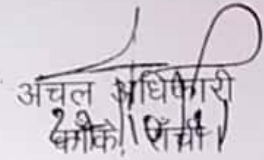 अंचल अधिकारी
कांके, राँची।